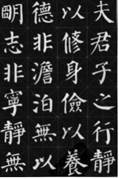 夫君子之行靜
以修身儉以養
德非澹泊無以
明志非寧靜無